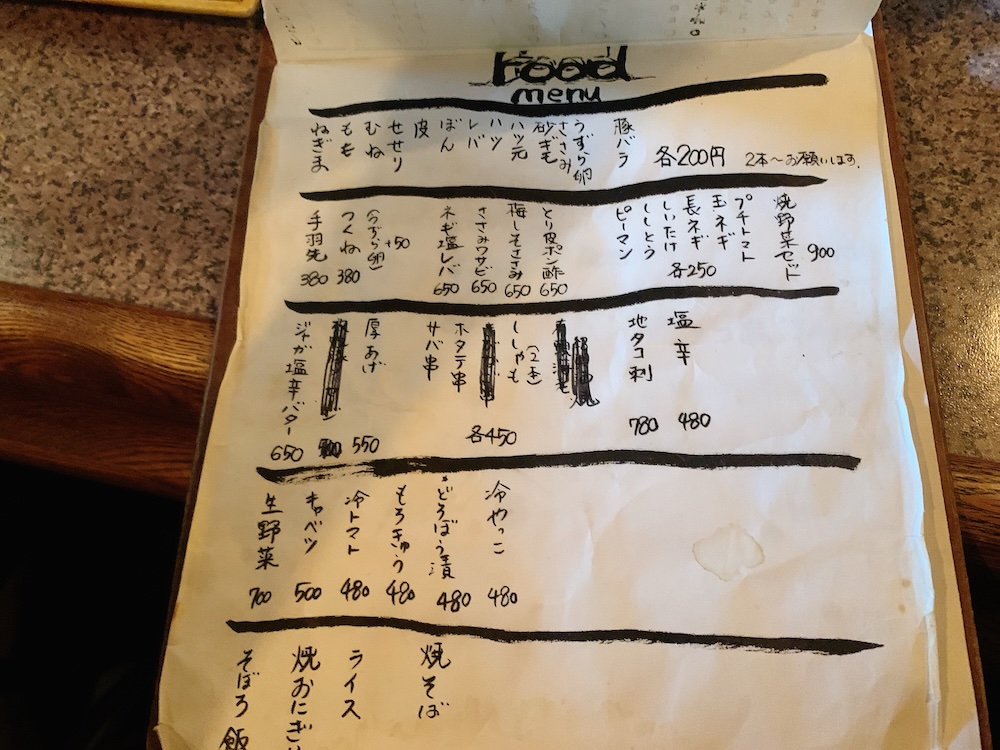 Food
menu
豚バラ
うずら卵
ささみ
砂ぎも
ハツ元
ハツ
レバ
ぼん
皮
せせり
むね
もも
ねぎま
各200円 2本〜お願いします。
焼野菜セット 900
プチトマト
玉ネギ
長ネギ
しいたけ
ししとう
ピーマン
各250
とり皮ポン酢 650
梅しそささみ 650
ささみワサビ 650
ネギ塩レバ 650
(うずら卵) +50
つくね 380
手羽先 380
塩辛 480
地タコ刺 780
ししゃも(2本)
ホタテ串
サバ串
各450
厚あげ 550
ジャガ塩辛バター 650
冷やっこ 480
どろぼう漬 480
もろきゅう 480
冷トマト 480
キャベツ 500
生野菜 700
焼そば
ライス
焼おにぎり
そぼろ飯